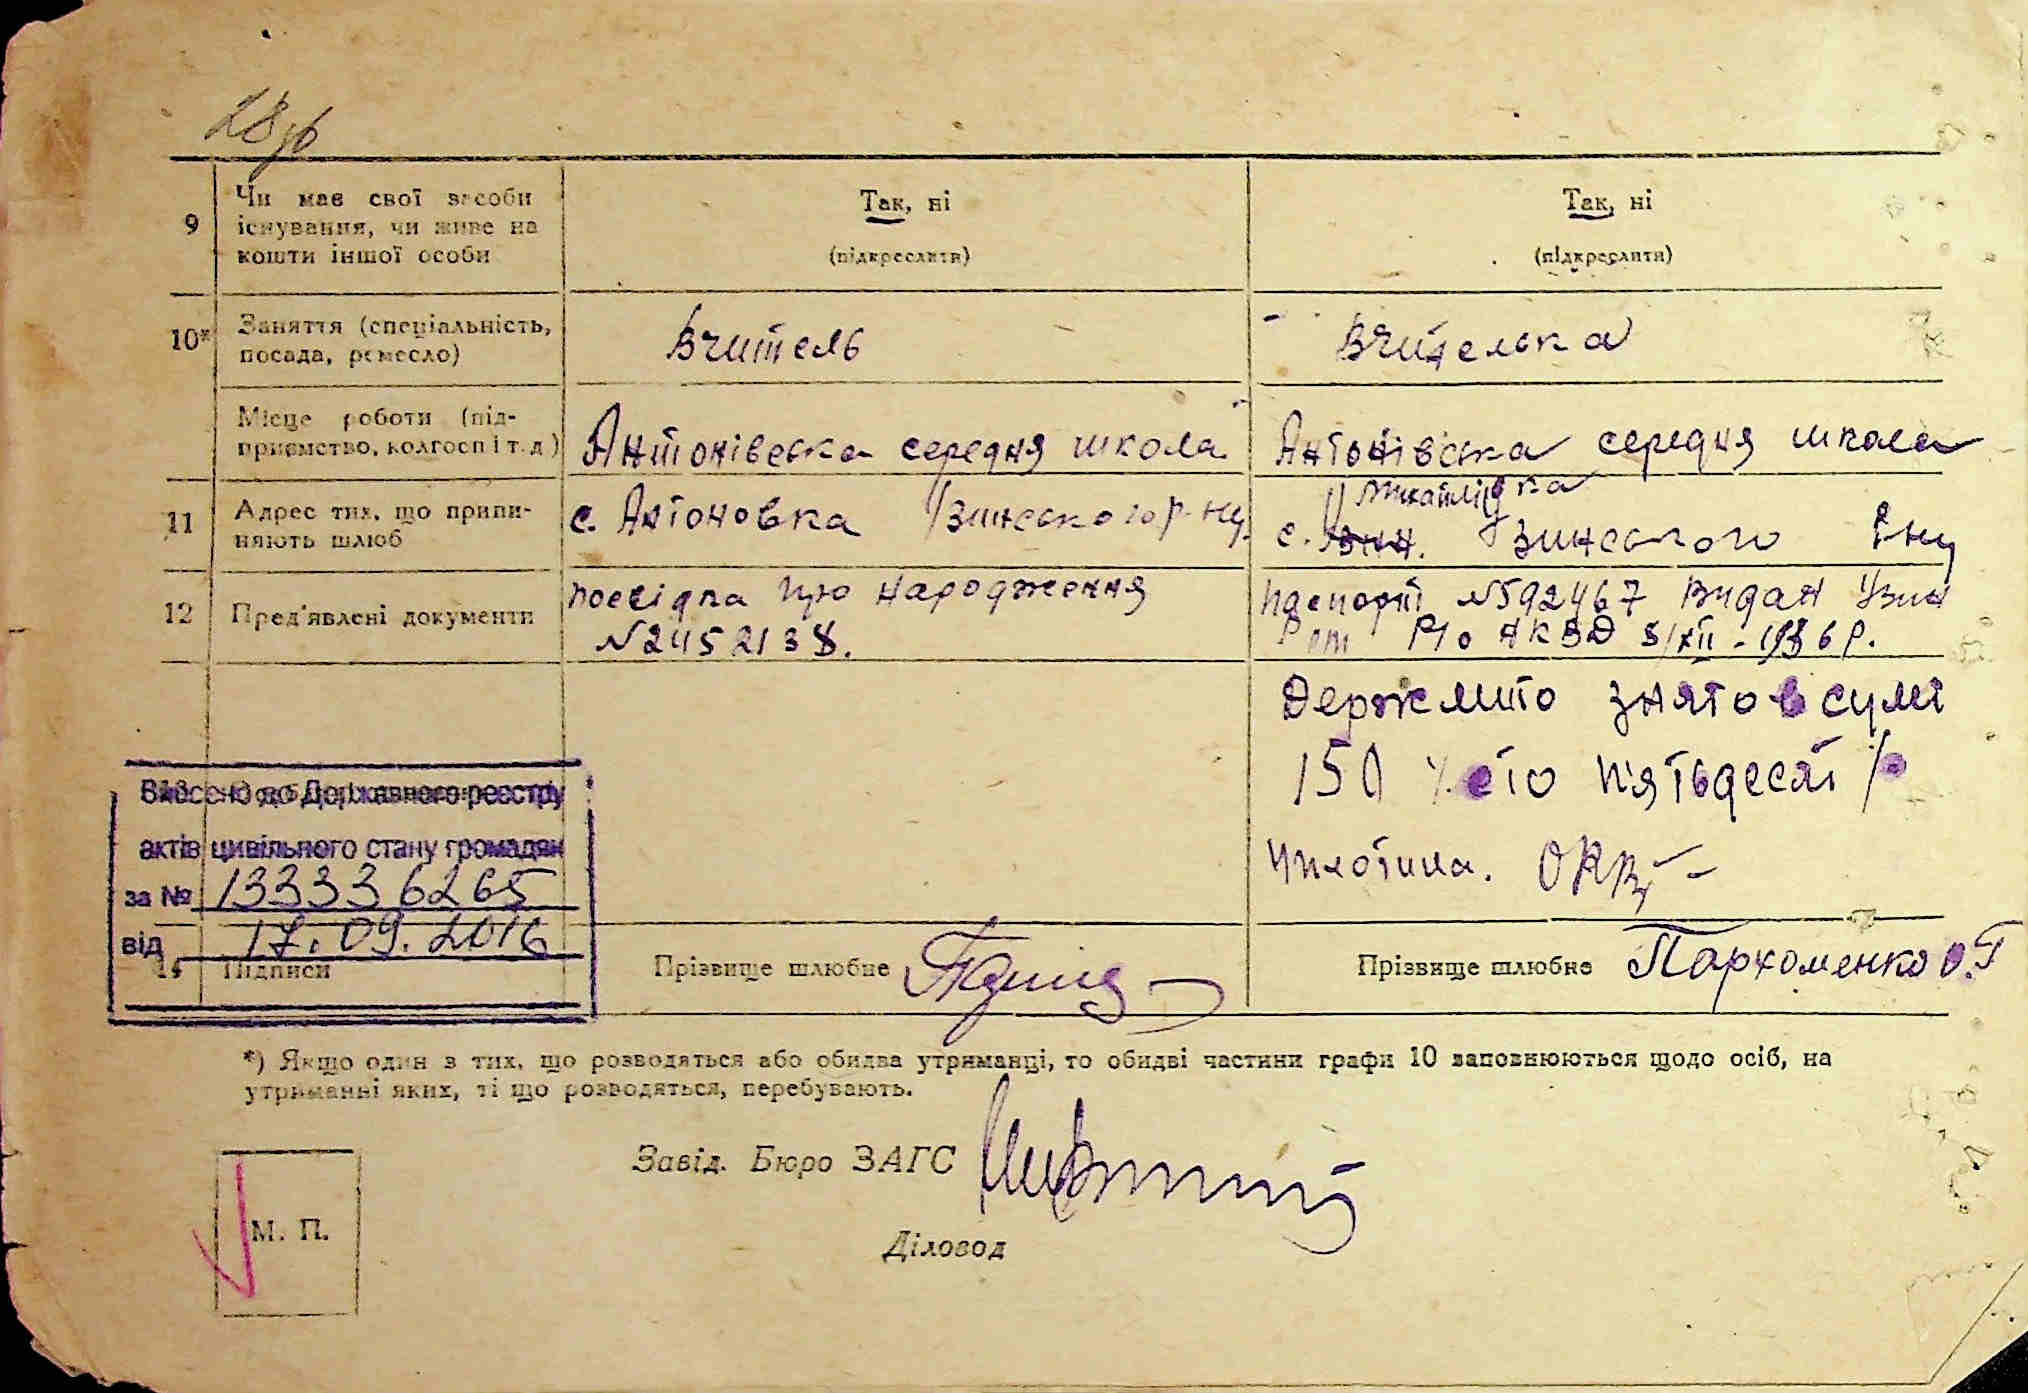 28
9 Чи має свої засоби існування, чи живе на кошти іншої особи
Так, ні
(підкреслити)
Так, ні
(підкреслити)
10* Заняття (спеціальність, посада, ремесло)
Вчитель
Вчителька
Місце роботи (підприємство, колгосп і т. д.)
Антонівська середня школа
Антонівська середня школа
11 Адрес тих, що припиняють шлюб
с. Антоновка Узинського р-ну
Михайлівка
с. Узинського р-ну
12 Пред'явлені документи
посвідка про народження
№ 2452138.
Паспорт №592467 Видан Узин
Р/о НКВД 8/XII - 1936 р.
Держмито знято в сумі
150 /сто п'ятьдесят/
Внесено до Державного реєстру
актів цивільного стану громадян
за № 133336265
від 17.09.2016
14 Підписи
Прізвище шлюбне
Прізвище шлюбне Пархоменко О.Г
*) Якщо один з тих, що розводяться або обидва утриманці, то обидві частини графи 10 заповнюються щодо осіб, на
утриманні яких, ті що розводяться, перебувають.
Завід. Бюро ЗАГС
М. П.
Діловод